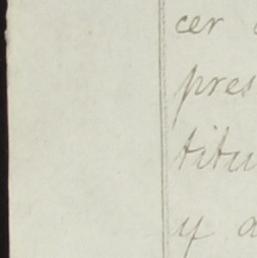 cer
pres
titu
y a